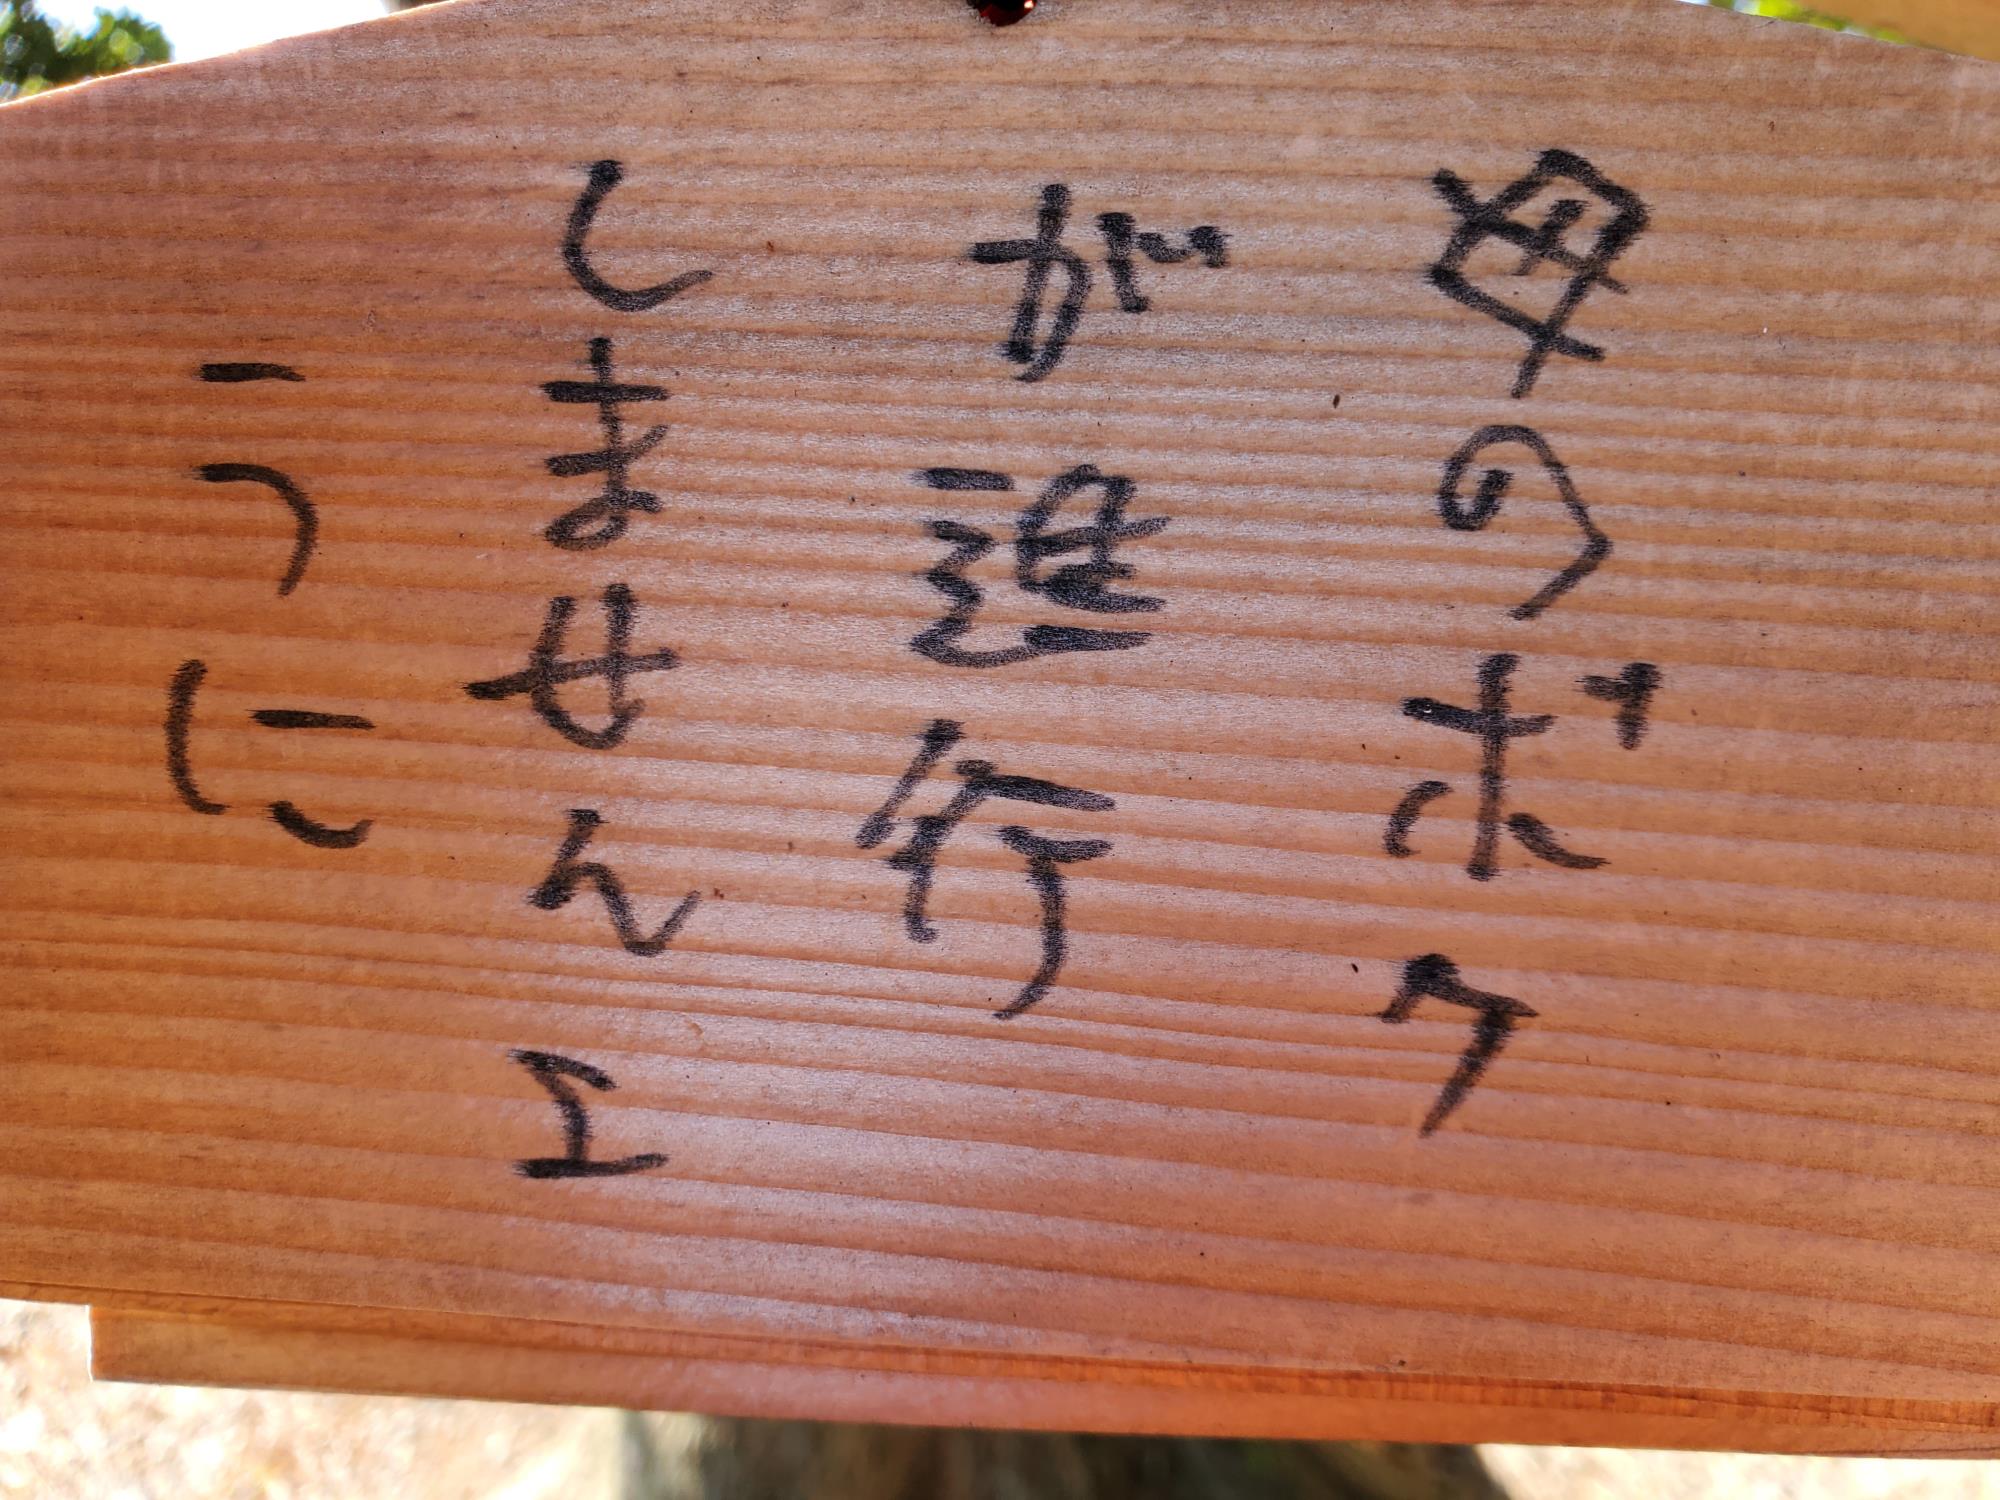 母のボケ
が進行
しませんエ
うに